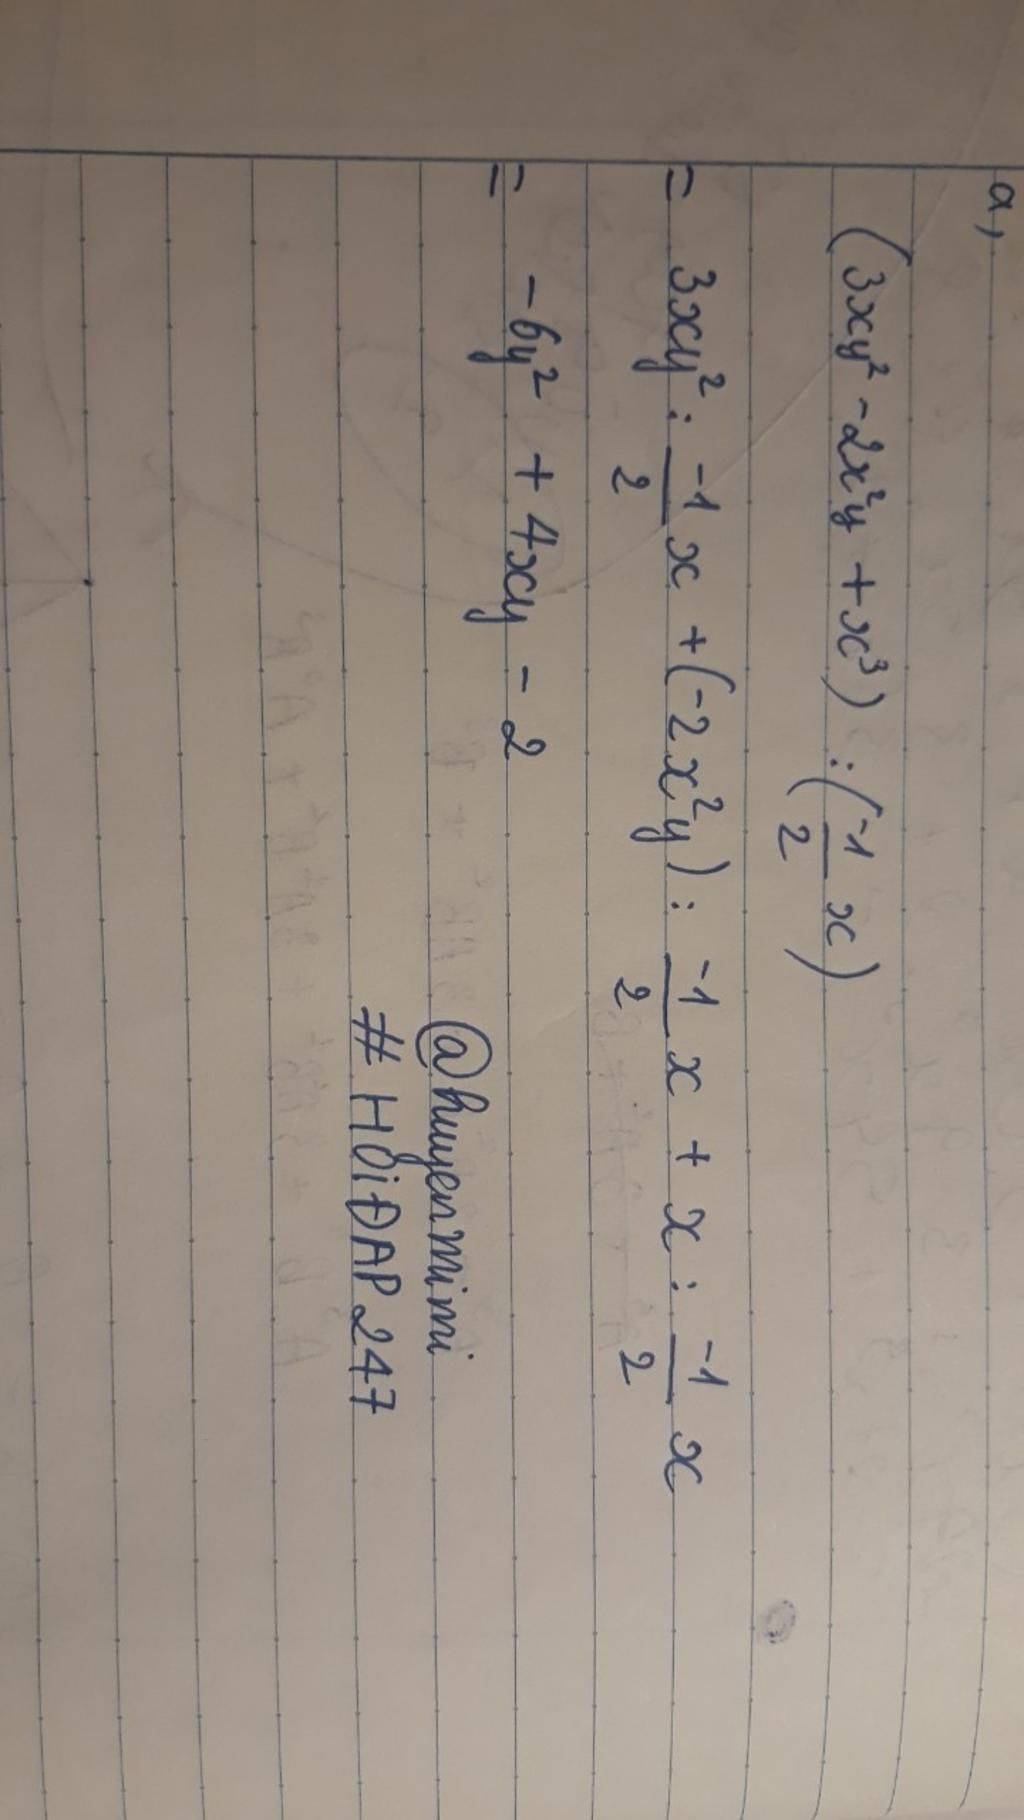 a,
(3xy² - 2x²y + x³) : (-1/2 x)
= 3xy² : -1/2 x + (-2x²y) : -1/2 x + x : -1/2 x
= -6y² + 4xy - 2
@huyenmimi
# HỎiĐAP 247